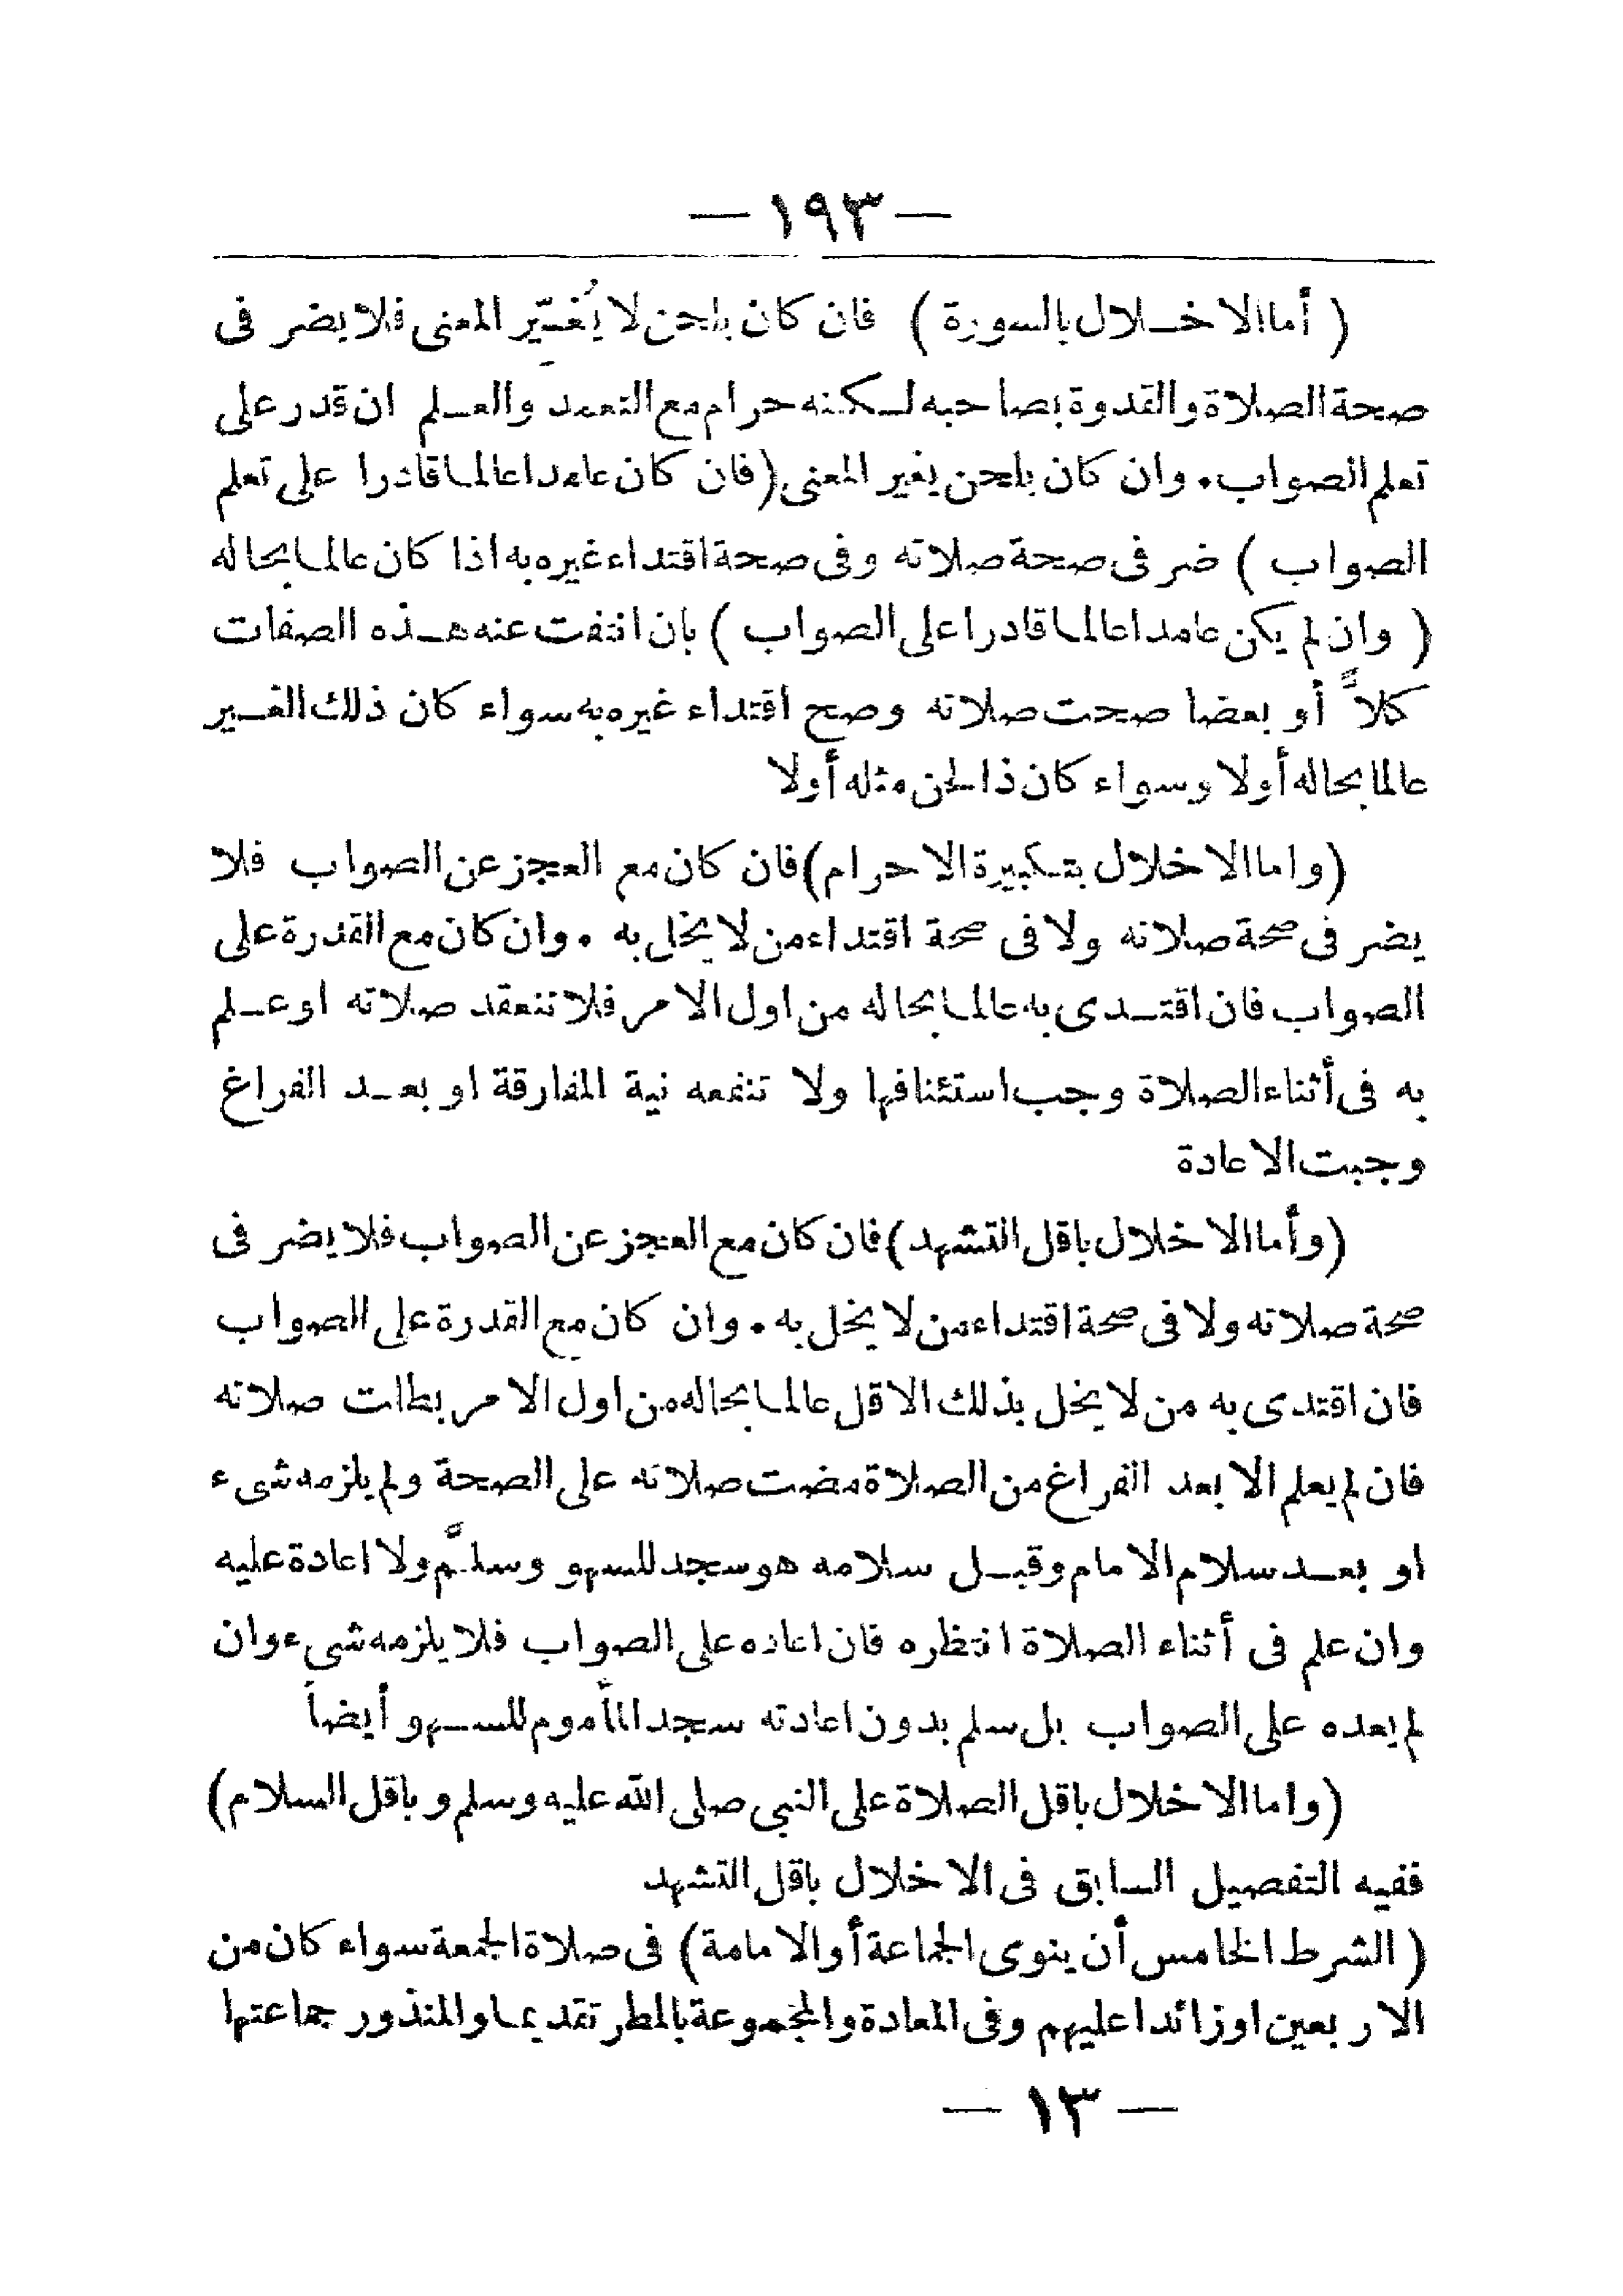 — ١٩٣ —
( أما الاخلال بالسورة ) فان كان بلحن لا يُغَيِّر المعنى فلا يضر فى
صحة الصلاة والقدوة بصاحبه لكنه حرام مع التعمد والعلم ان قدر على
تعلم الصواب . وان كان بلحن يغير المعنى (فان كان عامدا عالما قادرا على تعلم
الصواب ) ضر فى صحة صلاته وفى صحة اقتداء غيره به اذا كان عالما بحاله
( وان لم يكن عامدا عالما قادرا على الصواب ) بان انتفت عنه هذه الصفات
كلاً أو بعضا صحت صلاته وصح اقتداء غيره به سواء كان ذلك الغير
عالما بحاله أولا وسواء كان ذا لحن مثله أولا
(واما الاخلال بتكبيرة الاحرام) فان كان مع العجز عن الصواب فلا
يضر فى صحة صلاته ولا فى صحة اقتداء من لا يخل به . وان كان مع القدرة على
الصواب فان اقتدى به عالما بحاله من اول الامر فلا تنعقد صلاته او علم
به فى أثناء الصلاة وجب استئنافها ولا تنفعه نية المفارقة او بعد الفراغ
وجبت الاعادة
(وأما الاخلال باقل التشهد) فان كان مع العجز عن الصواب فلا يضر فى
صحة صلاته ولا فى صحة اقتداء من لا يخل به . وان كان مع القدرة على الصواب
فان اقتدى به من لا يخل بذلك الاقل عالما بحاله من اول الامر بطلت صلاته
فان لم يعلم الا بعد الفراغ من الصلاة مضت صلاته على الصحة ولم يلزمه شىء
او بعد سلام الامام وقبل سلامه هو سجد للسهو وسلَّم ولا اعادة عليه
وان علم فى أثناء الصلاة انتظره فان اعاده على الصواب فلا يلزمه شىء وان
لم يعده على الصواب بل سلم بدون اعادته سجد المأموم للسهو أيضاً
(واما الاخلال باقل الصلاة على النبى صلى الله عليه وسلم وباقل السلام)
ففيه التفصيل السابق فى الاخلال باقل التشهد
( الشرط الخامس أن ينوى الجماعة أو الامامة ) فى صلاة الجمعة سواء كان من
الاربعين او زائدا عليهم وفى المعادة والمجموعة بالمطر تقديما والمنذور جماعتها
— ١٣ —